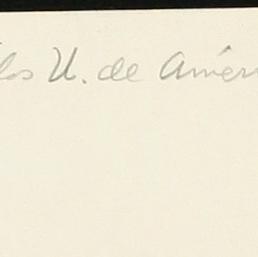 los U. de Amér